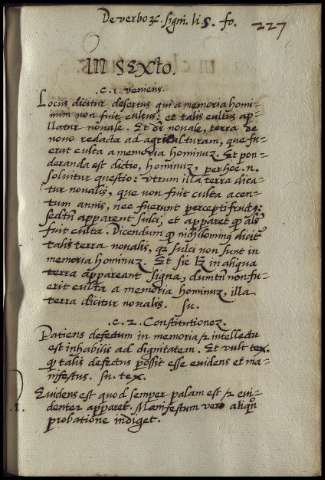 De verbo℞. signi. li 5. fo. 227
IN SEXTO.
.c. 1. veniens.
Locus dicitur desertus qui a memoria homi-
num non fuit cultus: et talis cultus ap-
llatur novale. Et dr̄ novale, terra de
novo redacta ad agriculturam, que fu-
erit culta a memoria hominuz. Et pon-
deranda est dictio, hominuz. per hoc .n.
solvitur questio: utrum illa terra dica-
tur novalis, que non fuit culta a cen-
tum annis, nec fuerunt percepti fructus
sed tn̄ apparent sulci, et apparet q̄ als̄
fuit culta. Dicendum q̄ nihilominq dicit̄
talis terra novalis, q̄a sulci non sunt in
memoria hominuz. Et sic lz in aliqua
terra appareant signa, dum tn̄ non fu-
erit culta a memoria hominuz, illa
terra dicitur novalis. su.
.c. 2. Constitutionez
Patiens defectum in memoria & intellectu
est inhabilis ad dignitatem. Et vult tex.
q̄ talis defectus possit esse evidens et ma-
nifestus. su. tex.
Evidens est quod semper palam est & evi-
denter apparet. Manifestum vero aliqn̄
probatione indiget.